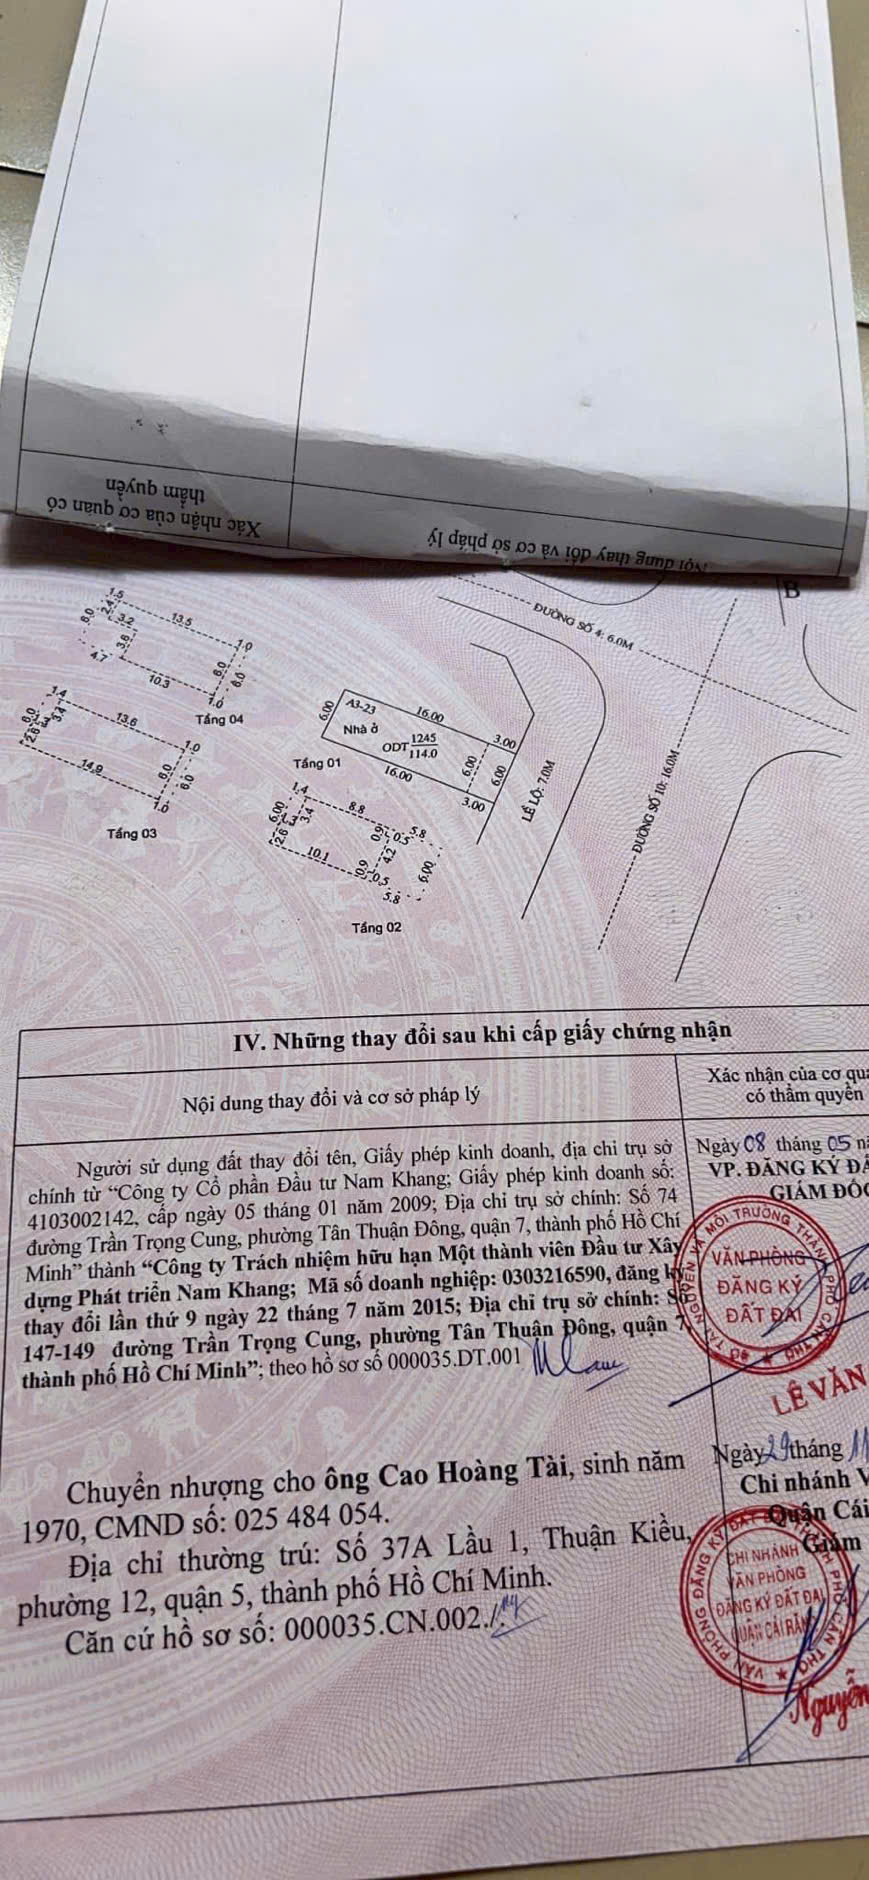 Nội dung thay đổi và cơ sở pháp lý
Xác nhận của cơ quan có
thẩm quyền
B
ĐƯỜNG SỐ 4: 6.0M
ĐƯỜNG SỐ 10: 16.0M
LỀ LỘ: 7.0M
1.5
13.5
6.0
2.4
3.2
3.6
4.7
10.3
1.0
6.0
6.0
1.0
Tầng 04
1.4
13.6
6.0
3.4
2.6
14.9
1.0
6.0
6.0
1.0
Tầng 03
6.00
A3-23
16.00
Nhà ở
ODT 1245
114.0
3.00
6.00
6.00
16.00
3.00
Tầng 01
1.4
8.8
6.00
3.4
2.6
10.1
0.9
0.5
5.8
4.2
6.00
0.9
0.5
5.8
Tầng 02
IV. Những thay đổi sau khi cấp giấy chứng nhận
Nội dung thay đổi và cơ sở pháp lý
Xác nhận của cơ
có thẩm quyền
Người sử dụng đất thay đổi tên, Giấy phép kinh doanh, địa chỉ trụ sở
chính từ “Công ty Cổ phần Đầu tư Nam Khang; Giấy phép kinh doanh số:
4103002142, cấp ngày 05 tháng 01 năm 2009; Địa chỉ trụ sở chính: Số 74
đường Trần Trọng Cung, phường Tân Thuận Đông, quận 7, thành phố Hồ Chí
Minh” thành “Công ty Trách nhiệm hữu hạn Một thành viên Đầu tư Xây
dựng Phát triển Nam Khang; Mã số doanh nghiệp: 0303216590, đăng ký
thay đổi lần thứ 9 ngày 22 tháng 7 năm 2015; Địa chỉ trụ sở chính: Số
147-149 đường Trần Trọng Cung, phường Tân Thuận Đông, quận 7,
thành phố Hồ Chí Minh”; theo hồ sơ số 000035.DT.001
Ngày 08 tháng 05
VP. ĐĂNG KÝ
GIÁM
VĂN PHÒNG
ĐĂNG KÝ
ĐẤT ĐAI
LÊ VĂN
Chuyển nhượng cho ông Cao Hoàng Tài, sinh năm
1970, CMND số: 025 484 054.
Địa chỉ thường trú: Số 37A Lầu 1, Thuận Kiều,
phường 12, quận 5, thành phố Hồ Chí Minh.
Căn cứ hồ sơ số: 000035.CN.002./.
Ngày 29 tháng 11
Chi nhánh
Quận Cái
Giám
CHI NHÁNH
VĂN PHÒNG
ĐĂNG KÝ ĐẤT ĐAI
QUẬN CÁI RĂNG
Nguyễn